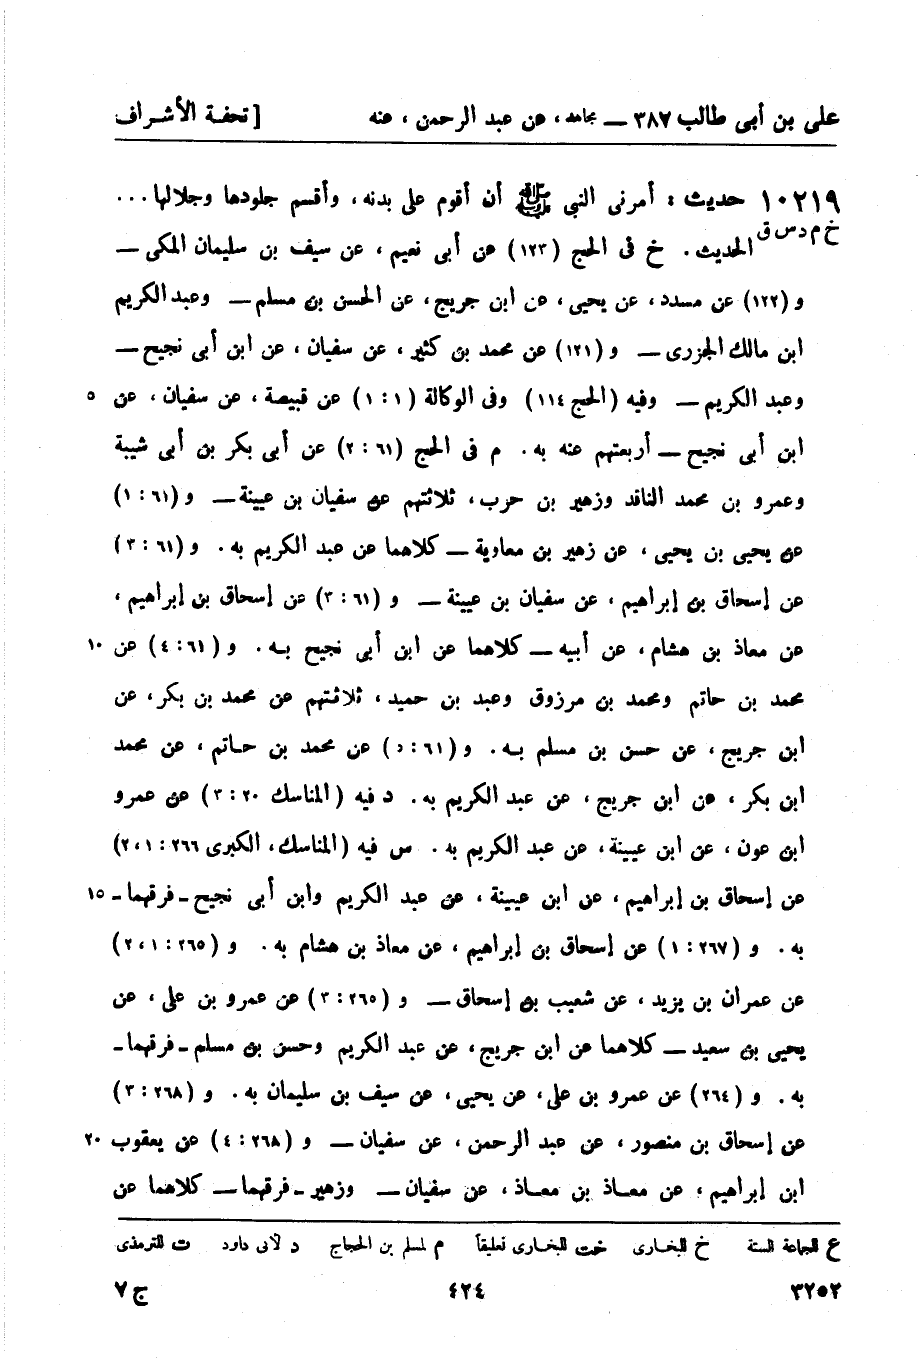 على بن أبى طالب ٣٨٧ — مجاهد ، عن عبد الرحمن ، عنه [ تحفة الأشراف
١٠٢١٩ حديث : أمرنى النبى ﷺ أن أقوم على بدنه ، وأقسم جلودها وجلالها ...
خ م د س ق الحديث . خ فى الحج (١٢٣) عن أبى نعيم ، عن سيف بن سليمان المكى —
و (١٢٢) عن مسدد ، عن يحيى ، عن ابن جريج ، عن الحسن بن مسلم — وعبد الكريم
ابن مالك الجزرى — و (١٢١) عن محمد بن كثير ، عن سفيان ، عن ابن أبى نجيح —
وعبد الكريم — وفيه (الحج ١١٤) وفى الوكالة (١ : ١) عن قبيصة ، عن سفيان ، عن ٥
ابن أبى نجيح — أربعتهم عنه به . م فى الحج (٦١ : ٢) عن أبى بكر بن أبى شيبة
وعمرو بن محمد الناقد وزهير بن حرب ، ثلاثتهم عن سفيان بن عيينة — و (٦١ : ١)
عن يحيى بن يحيى ، عن زهير بن معاوية — كلاهما عن عبد الكريم به . و (٦١ : ٣)
عن إسحاق بن إبراهيم ، عن سفيان بن عيينة — و (٦١ : ٣) عن إسحاق بن إبراهيم ،
عن معاذ بن هشام ، عن أبيه — كلاهما عن ابن أبى نجيح به . و (٦١ : ٤) عن ١٠
محمد بن حاتم ومحمد بن مرزوق وعبد بن حميد ، ثلاثتهم عن محمد بن بكر ، عن
ابن جريج ، عن حسن بن مسلم به . و (٦١ : ٥) عن محمد بن حاتم ، عن محمد
ابن بكر ، عن ابن جريج ، عن عبد الكريم به . د فيه (المناسك ٢٠ : ٣) عن عمرو
ابن عون ، عن ابن عيينة ، عن عبد الكريم به . س فيه (المناسك ، الكبرى ٢٦٦ : ١ ، ٢)
عن إسحاق بن إبراهيم ، عن ابن عيينة ، عن عبد الكريم وابن أبى نجيح - فرقهما - ١٥
به . و (٢٦٧ : ١) عن إسحاق بن إبراهيم ، عن معاذ بن هشام به . و (٢٦٥ : ١ ، ٢)
عن عمران بن يزيد ، عن شعيب بن إسحاق — و (٢٦٥ : ٣) عن عمرو بن على ، عن
يحيى بن سعيد — كلاهما عن ابن جريج ، عن عبد الكريم وحسن بن مسلم - فرقهما -
به . و (٢٦٤) عن عمرو بن على ، عن يحيى ، عن سيف بن سليمان به . و (٢٦٨ : ٣)
عن إسحاق بن منصور ، عن عبد الرحمن ، عن سفيان — و (٢٦٨ : ٤) عن يعقوب ٢٠
ابن إبراهيم ، عن معاذ بن معاذ ، عن سفيان — وزهير - فرقهما — كلاهما عن
ع للجماعة الستة خ للبخارى خت للبخارى تعليقاً م لمسلم بن الحجاج د لأبى داود ت للترمذى
٣٢٥٢ ٤٢٤ ج ٧